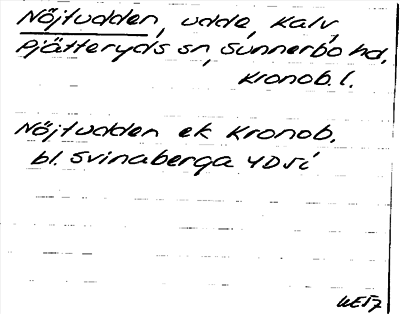 Nöjtudden, udde, Kalv,
Pjätteryds sn, Sunnerbo hd,
Kronob. l.
Nöjtudden ek Kronob.
bl. Svinaberga 4D5i